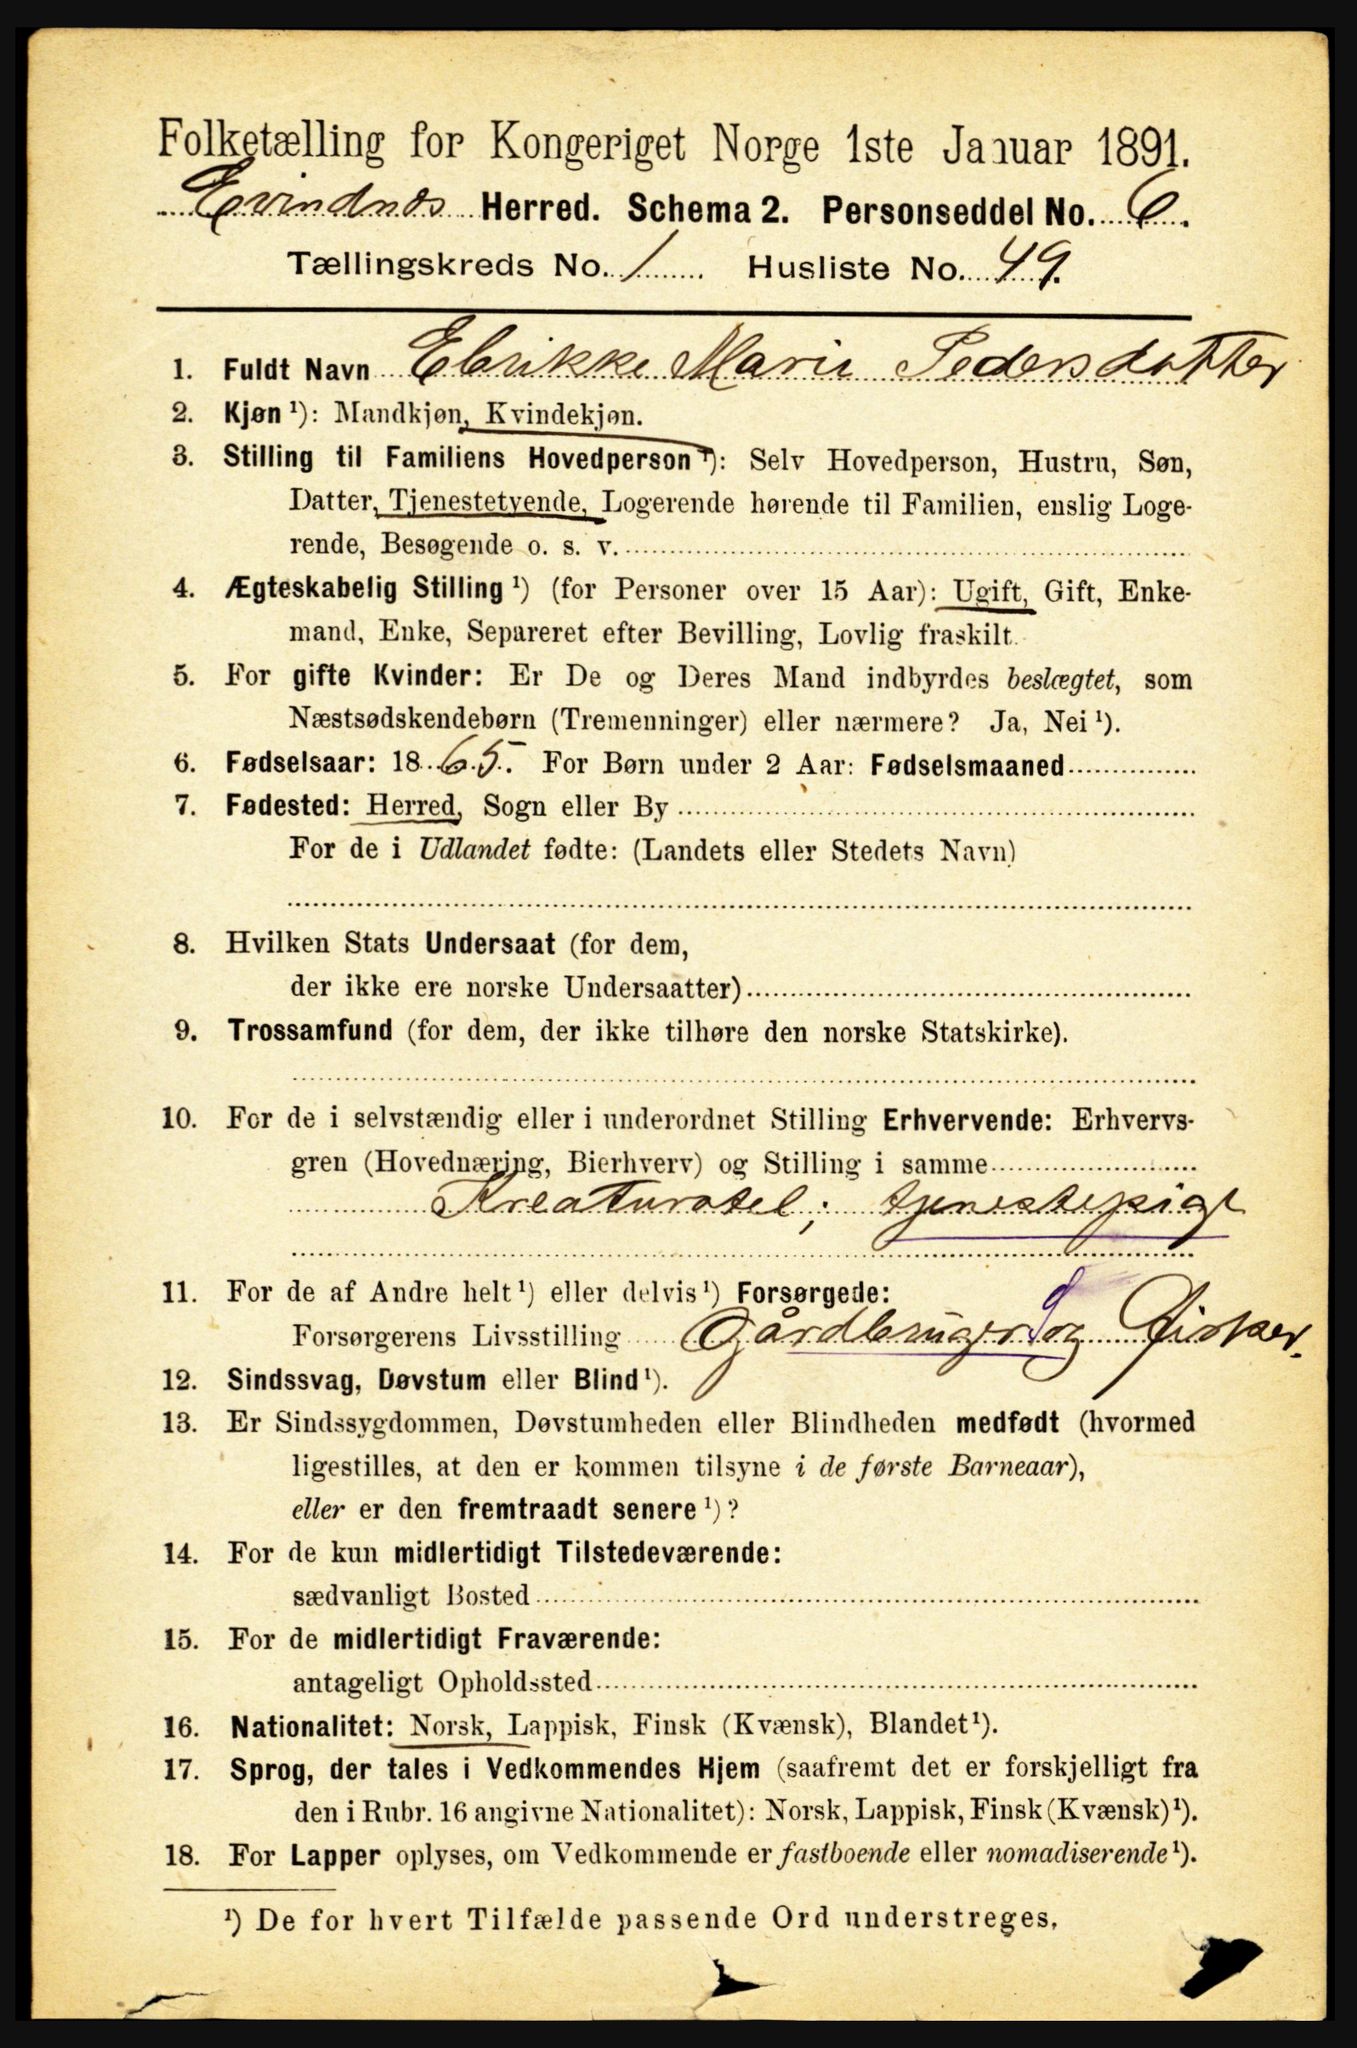 Folketælling for Kongeriget Norge 1ste Januar 1891.
Evindnæs Herred. Schema 2. Personseddel No. 6.
Tællingskreds No. 1 Husliste No. 49.
1. Fuldt Navn Elrikke Marie Pedersdatter
2. Kjøn ¹): Mandkjøn, Kvindekjøn.
3. Stilling til Familiens Hovedperson ¹): Selv Hovedperson, Hustru, Søn,
Datter, Tjenestetyende, Logerende hørende til Familien, enslig Loge-
rende, Besøgende o. s. v.
4. Ægteskabelig Stilling ¹) (for Personer over 15 Aar): Ugift, Gift, Enke-
mand, Enke, Separeret efter Bevilling, Lovlig fraskilt.
5. For gifte Kvinder: Er De og Deres Mand indbyrdes beslægtet, som
Næstsødskendebørn (Tremenninger) eller nærmere? Ja, Nei ¹).
6. Fødselsaar: 1865. For Børn under 2 Aar: Fødselsmaaned
7. Fødested: Herred, Sogn eller By
For de i Udlandet fødte: (Landets eller Stedets Navn)
8. Hvilken Stats Undersaat (for dem,
der ikke ere norske Undersaatter)
9. Trossamfund (for dem, der ikke tilhøre den norske Statskirke).
10. For de i selvstændig eller i underordnet Stilling Erhvervende: Erhvervs-
gren (Hovednæring, Bierhverv) og Stilling i samme
Kreaturstel; tjenestepige
11. For de af Andre helt ¹) eller delvis ¹) Forsørgede:
Forsørgerens Livsstilling Gårdbruger og Fisker.
12. Sindssvag, Døvstum eller Blind ¹).
13. Er Sindssygdommen, Døvstumheden eller Blindheden medfødt (hvormed
ligestilles, at den er kommen tilsyne i de første Barneaar),
eller er den fremtraadt senere ¹)?
14. For de kun midlertidigt Tilstedeværende:
sædvanligt Bosted
15. For de midlertidigt Fraværende:
antageligt Opholdssted
16. Nationalitet: Norsk, Lappisk, Finsk (Kvænsk), Blandet ¹).
17. Sprog, der tales i Vedkommendes Hjem (saafremt det er forskjelligt fra
den i Rubr. 16 angivne Nationalitet): Norsk, Lappisk, Finsk (Kvænsk) ¹).
18. For Lapper oplyses, om Vedkommende er fastboende eller nomadiserende ¹).
¹) De for hvert Tilfælde passende Ord understreges.